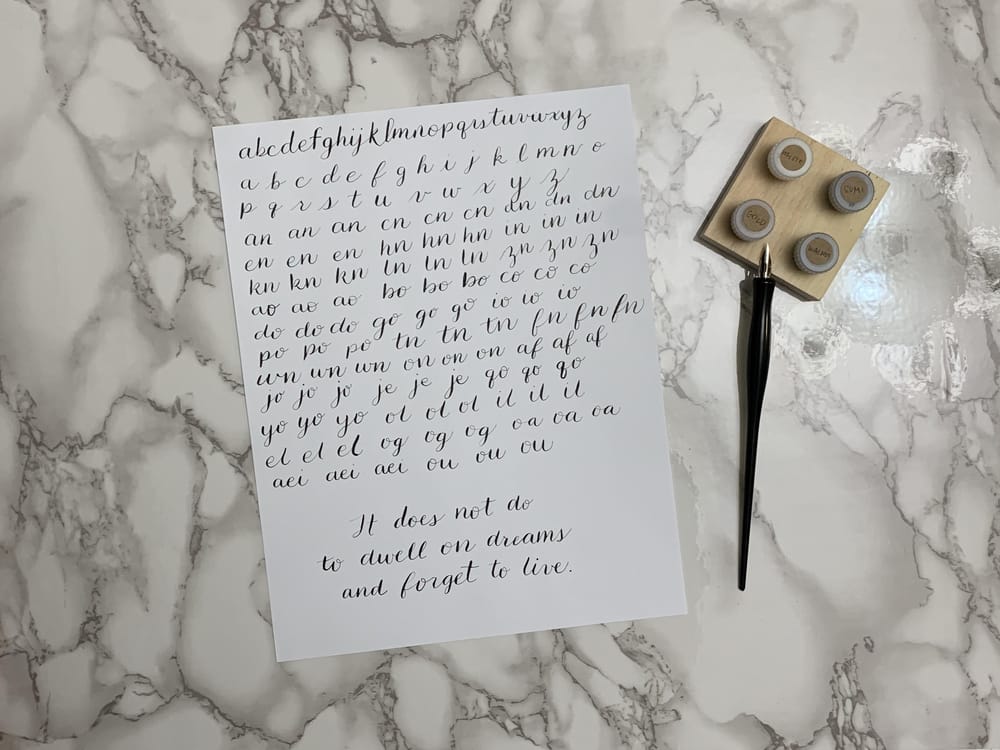 abcdefghijklmnopqrstuvwxyz
a b c d e f g h i j k l m n o
p q r s t u v w x y z
an an an cn cn cn dn dn dn
en en en hn hn hn in in in
kn kn kn ln ln ln zn zn zn
ao ao ao bo bo bo co co co
do do do go go go io io io
po po po tn tn tn fn fn fn
wn wn wn on on on af af af
jo jo jo je je je qo qo qo
yo yo yo ol ol ol il il il
el el el og og og oa oa oa
aei aei aei ou ou ou
It does not do
to dwell on dreams
and forget to live.
SUMI
GOLD
WALNUT